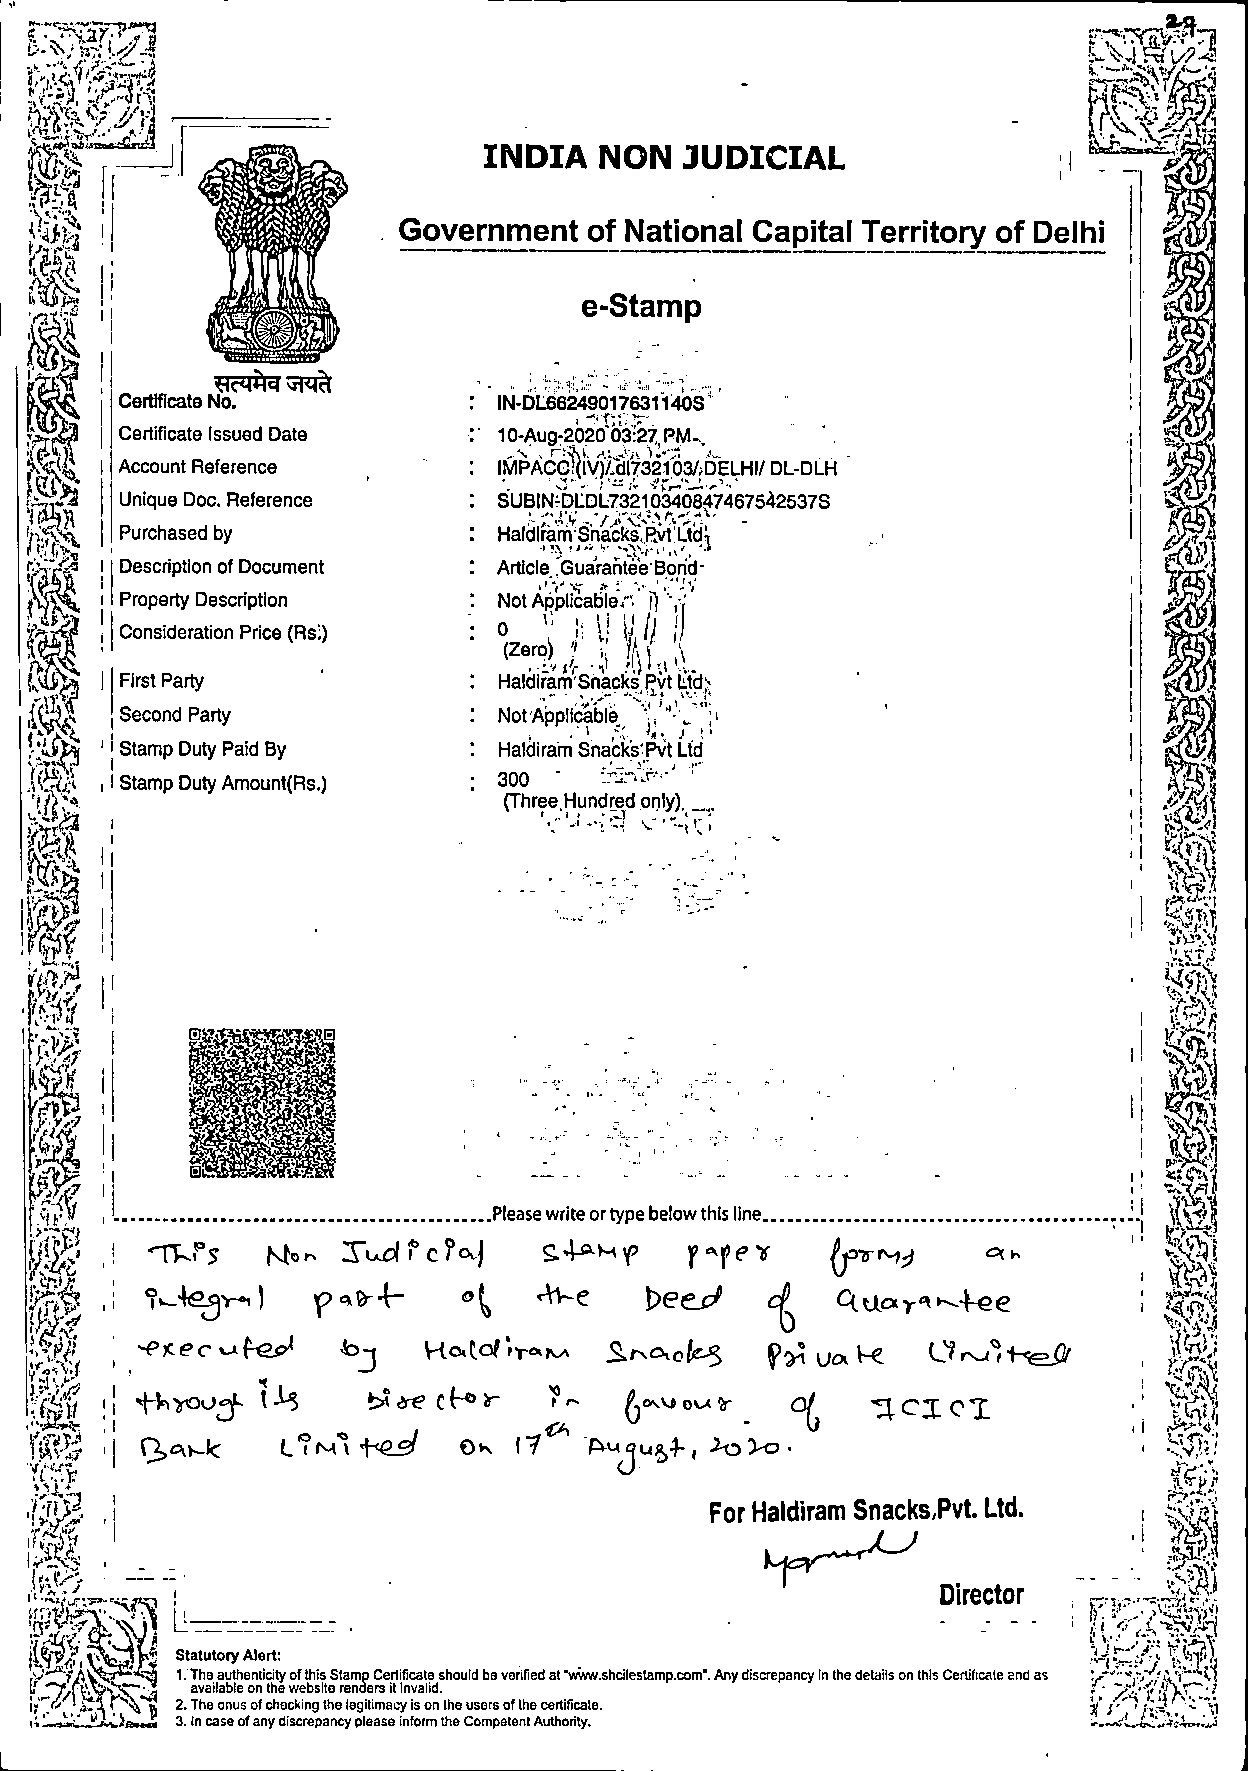 29
INDIA NON JUDICIAL
Government of National Capital Territory of Delhi
e-Stamp
सत्यमेव जयते
Certificate No. : IN-DL66249017631140S
Certificate Issued Date : 10-Aug-2020 03:27 PM
Account Reference : IMPACC (IV)/ dl732103/ DELHI/ DL-DLH
Unique Doc. Reference : SUBIN-DLDL73210340847467542537S
Purchased by : Haldiram Snacks Pvt Ltd
Description of Document : Article Guarantee Bond
Property Description : Not Applicable
Consideration Price (Rs.) : 0
(Zero)
First Party : Haldiram Snacks Pvt Ltd
Second Party : Not Applicable
Stamp Duty Paid By : Haldiram Snacks Pvt Ltd
Stamp Duty Amount(Rs.) : 300
(Three Hundred only)
Please write or type below this line
This Non Judicial Stamp paper forms an
integral part of the Deed of Guarantee
executed by Haldiram Snacks Private Limited
through its Director in favour of ICICI
Bank Limited on 17th August, 2020.
For Haldiram Snacks Pvt. Ltd.
Director
Statutory Alert:
1. The authenticity of this Stamp Certificate should be verified at "www.shcilestamp.com". Any discrepancy in the details on this Certificate and as
available on the website renders it invalid.
2. The onus of checking the legitimacy is on the users of the certificate.
3. In case of any discrepancy please inform the Competent Authority.